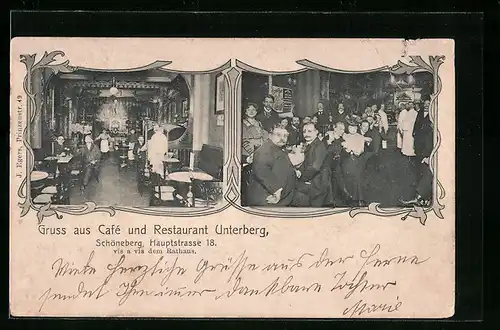 J. Egers, Prinzenstr. 49
Gruss aus Café und Restaurant Unterberg,
Schöneberg, Hauptstrasse 18.
vis a vis dem Rathaus.
herzliche Grüsse aus der Ferne
sendet Ihnen immer dankbare Tochter
Marie